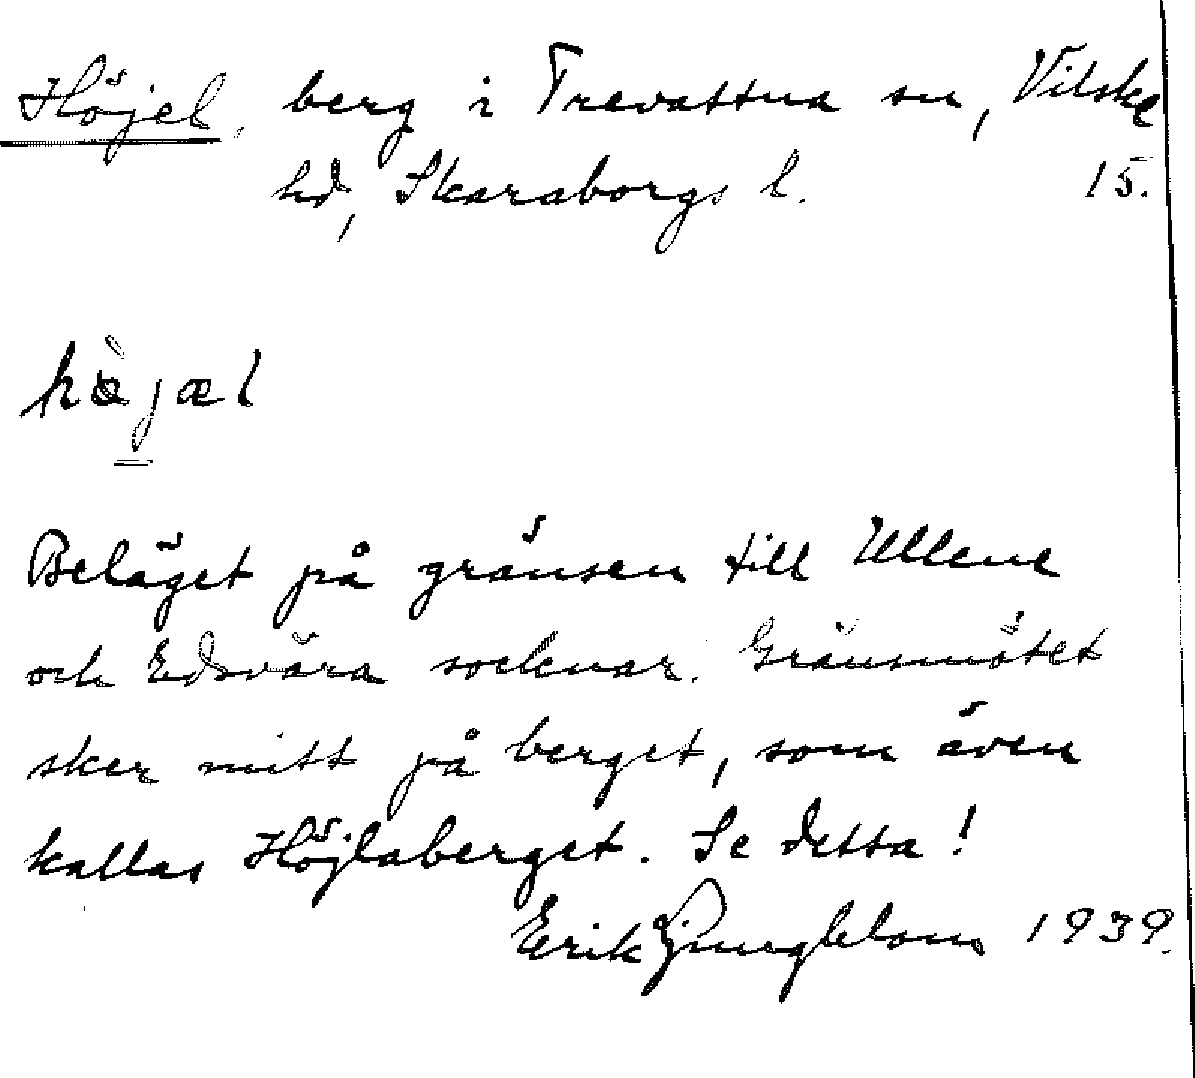 Höjel, berg i Trevattna sn, Vilske
hd, Skaraborgs l. 15.
Beläget på gränsen till Ullene
och Edsvära socknar. Gränsmötet
sker mitt på berget, som även
kallas Höjlaberget. Se detta!
Erik Ljungblom 1939.